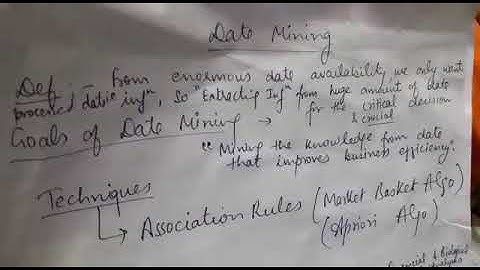 Data Mining
Def - from enormous data availability we only want
processed data infⁿ, so "Extracting Infⁿ from huge amount of data
for the critical decision
& crucial
Goals of Data Mining →
"Mining the knowledge from data
that improves business efficiency."
Techniques
→ Association Rules (Market Basket Algo)
(Apriori Algo)
Financial & Biological